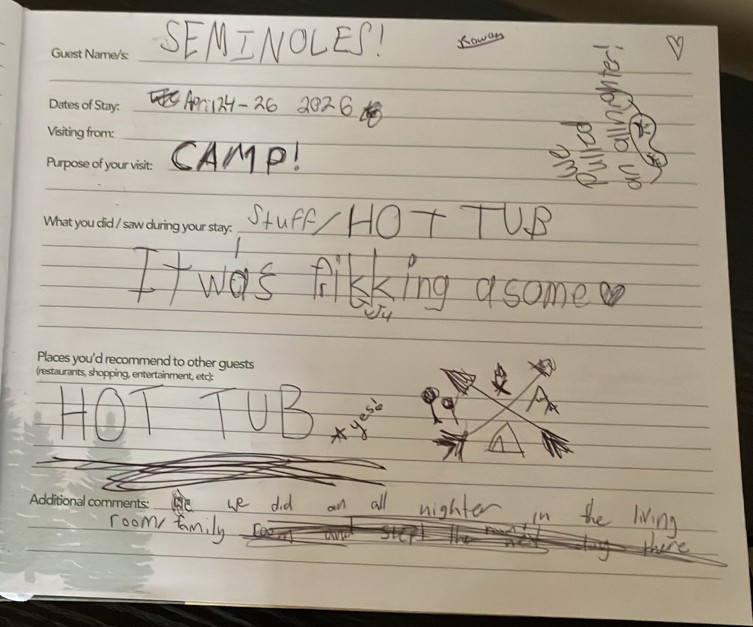 Guest Name/s: SEMINOLES!
Rowan
we pulled an allnighter!
Dates of Stay: April 24-26 2026
Visiting from:
Purpose of your visit: CAMP!
What you did / saw during your stay: Stuff/HOT TUB
It was frikking asome
Places you'd recommend to other guests
(restaurants, shopping, entertainment, etc):
HOT TUB
yes!
Additional comments: we did an all nighter in the living
room/family room and slept the next day there